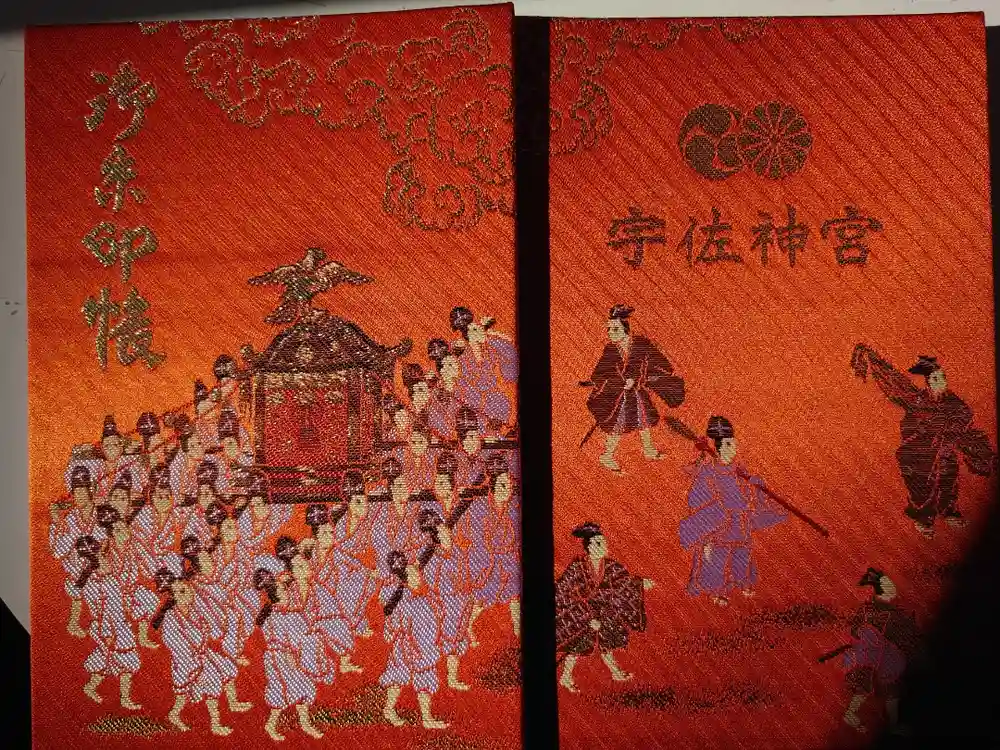 御朱印帳
宇佐神宮